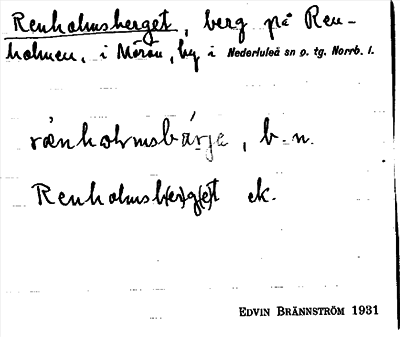 Renholmsberget, berg på Ren-
holmen, i Mörön, by i Nederluleå sn o. tg. Norrb. l.
b. n.
Renholmsb(er)g(e)t ek.
EDVIN BRÄNNSTRÖM 1931